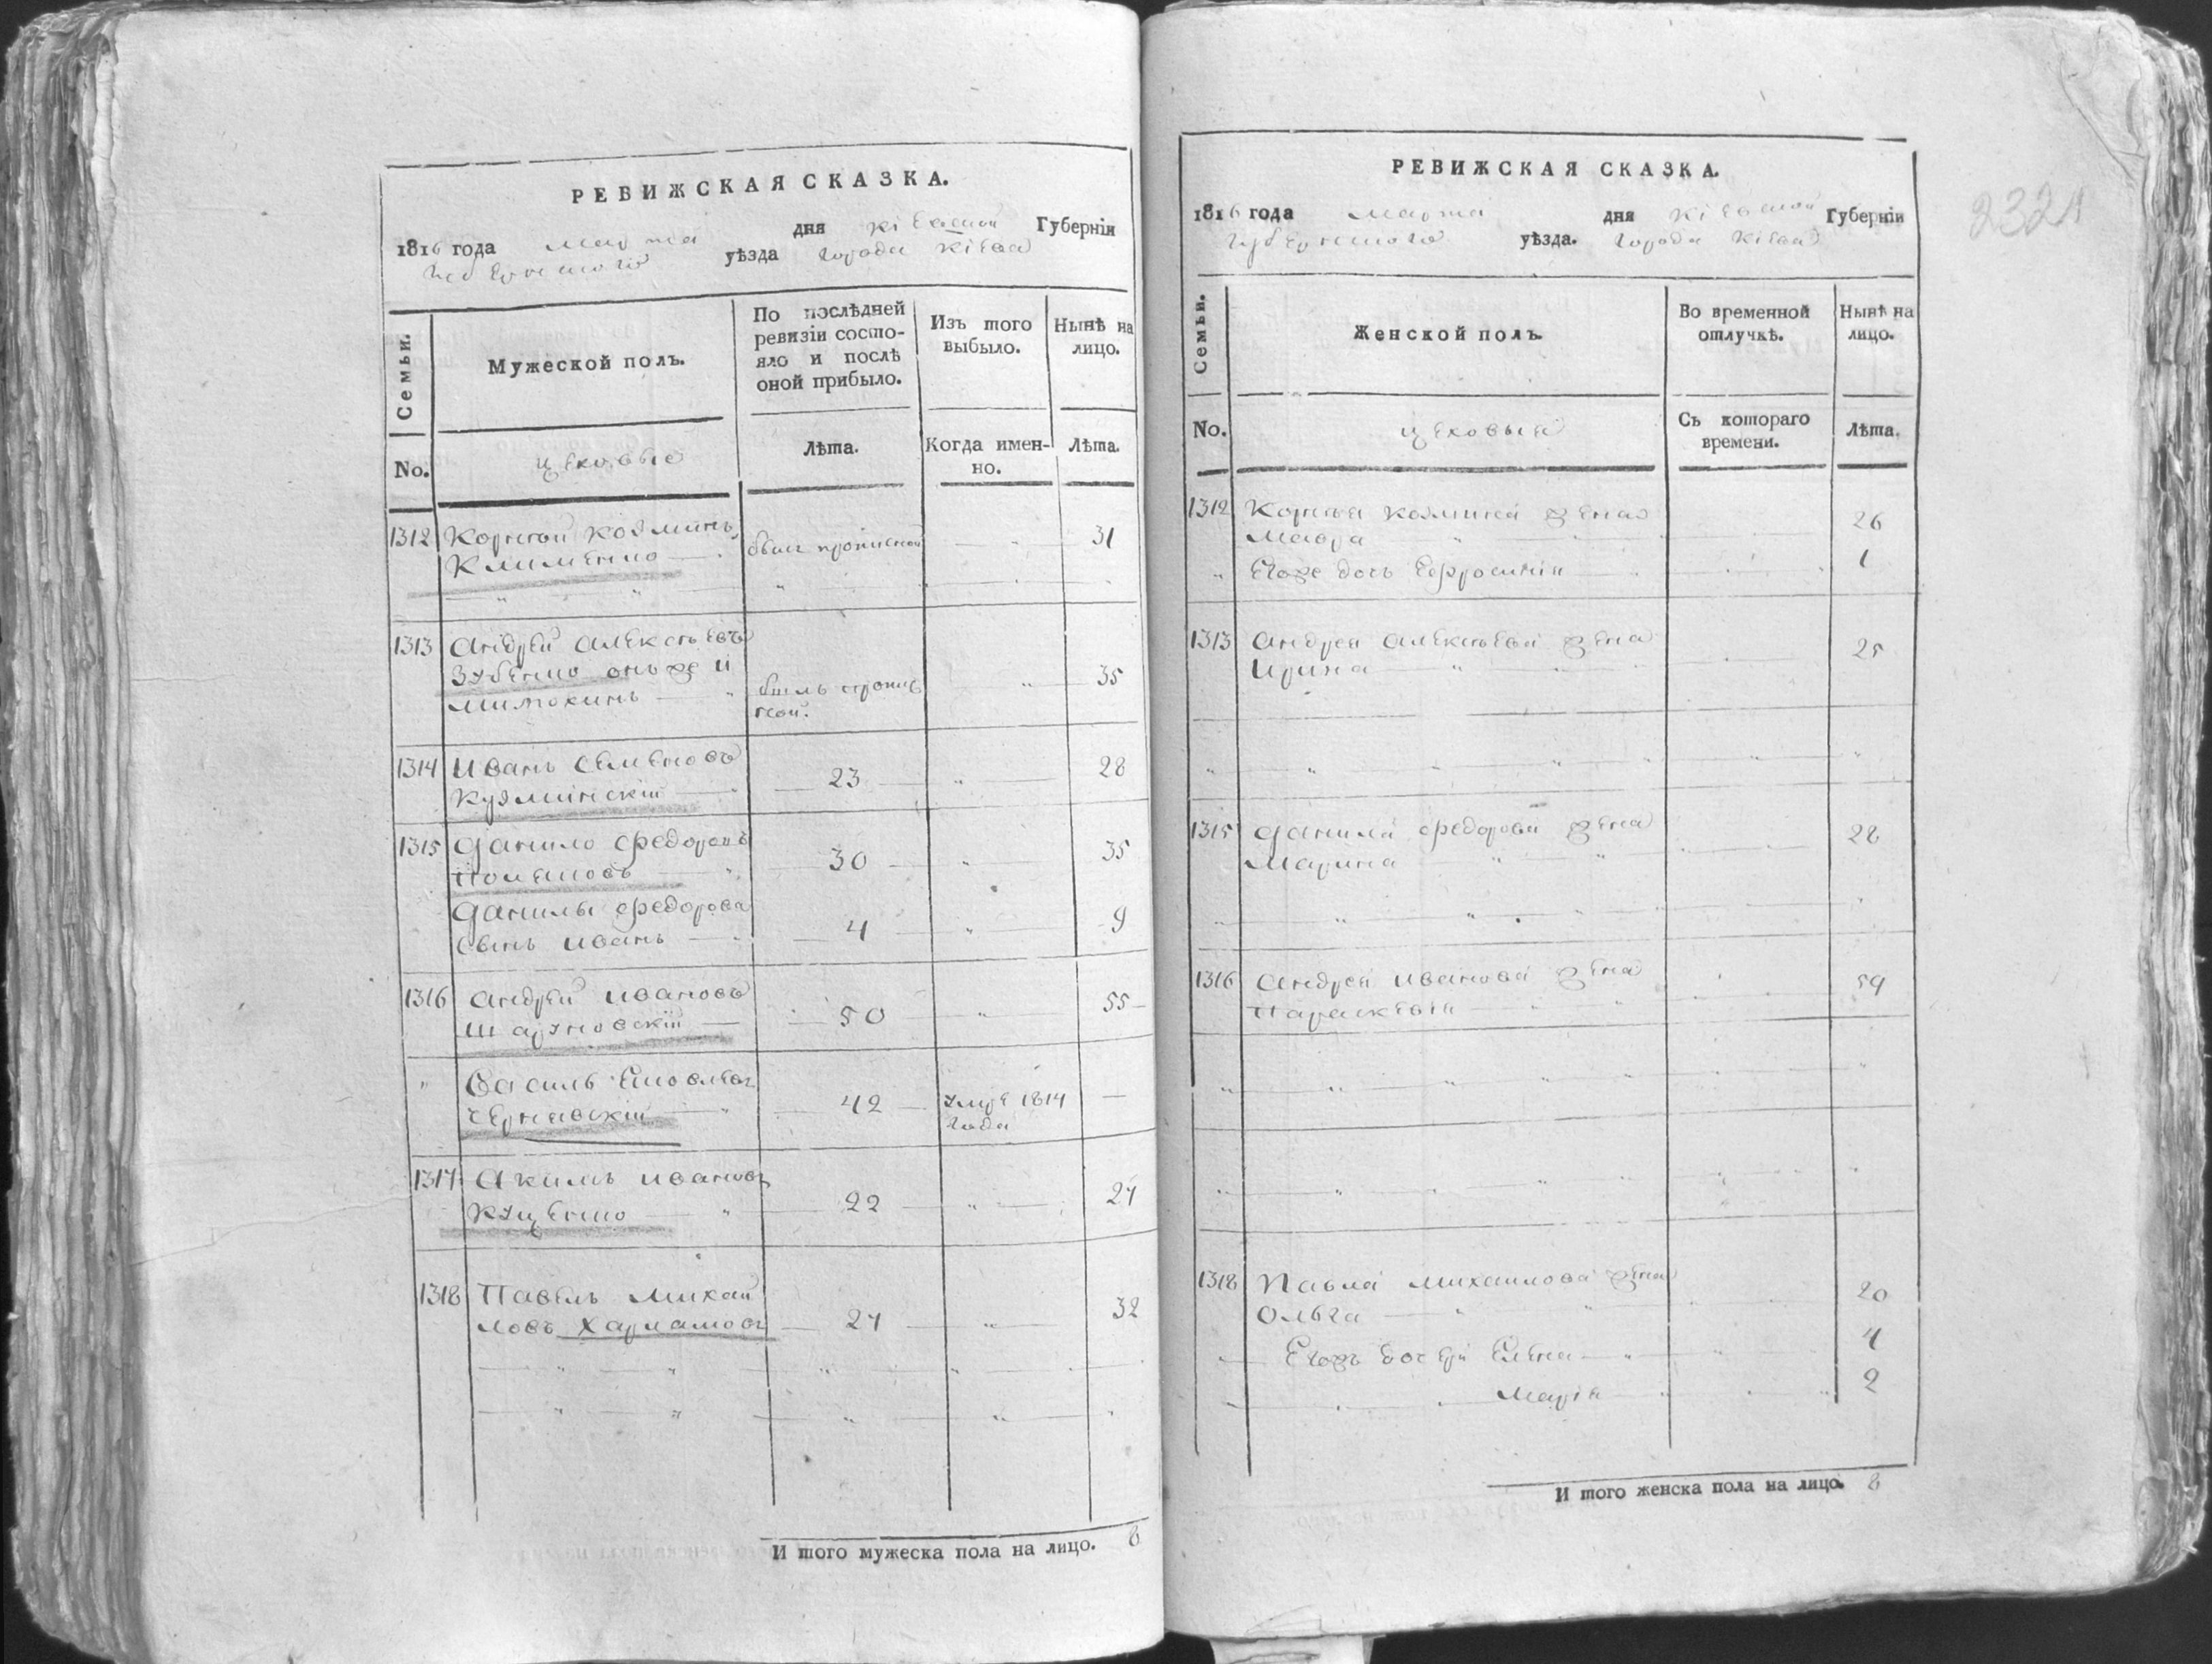 РЕВИЖСКАЯ СКАЗКА.
1816 года марта дня Кіевской Губерніи
уѣзда города Кіева
Семьи.
Мужеской полъ.
По послѣдней
ревизіи состо-
яло и послѣ
оной прибыло.
Изъ того
выбыло.
Нынѣ на
лицо.
No.
цеховые
Лѣта.
Когда имен-
но.
Лѣта.
1312 Корней Козминъ
Клименко был прописной 31
1313 Андрей Алексѣевъ
Зубенко онъ же и
былъ пропис 35
ной.
1314 Иванъ Семеновъ
Кузминскій 23 28
1315 Данило Федоровъ
30 35
Данилы Федорова
сынъ Иванъ 4 9
1316 Андрей Ивановъ
50 55
Василь
Чернявскій 42 умре 1814
года
1317 Акимъ Ивановъ
Куценко 22 27
1318 Павелъ Михай
ловъ Харламовъ 27 32
И того мужеска пола на лицо. 8
РЕВИЖСКАЯ СКАЗКА.
1816 года марта дня Кіевской Губерніи
Губернского уѣзда. города Кіева
Семьи.
Женской полъ.
Во временной
отлучкѣ.
Нынѣ на
лицо.
No.
цеховыя
Съ котораго
времени.
Лѣта.
1312 Корнея Козмина жена
Мавра 26
Егоже дочь Ефросинія 1
1313 Андрея Алексѣева жена
Ирина 25
1315 Данила Федорова жена
Марина 28
1316 Андрея Иванова жена
Параскевія 59
1318 Павла Михаилова жена
Ольга 20
Егожъ дочери Елена 4
Марія 2
И того женска пола на лицо. 8